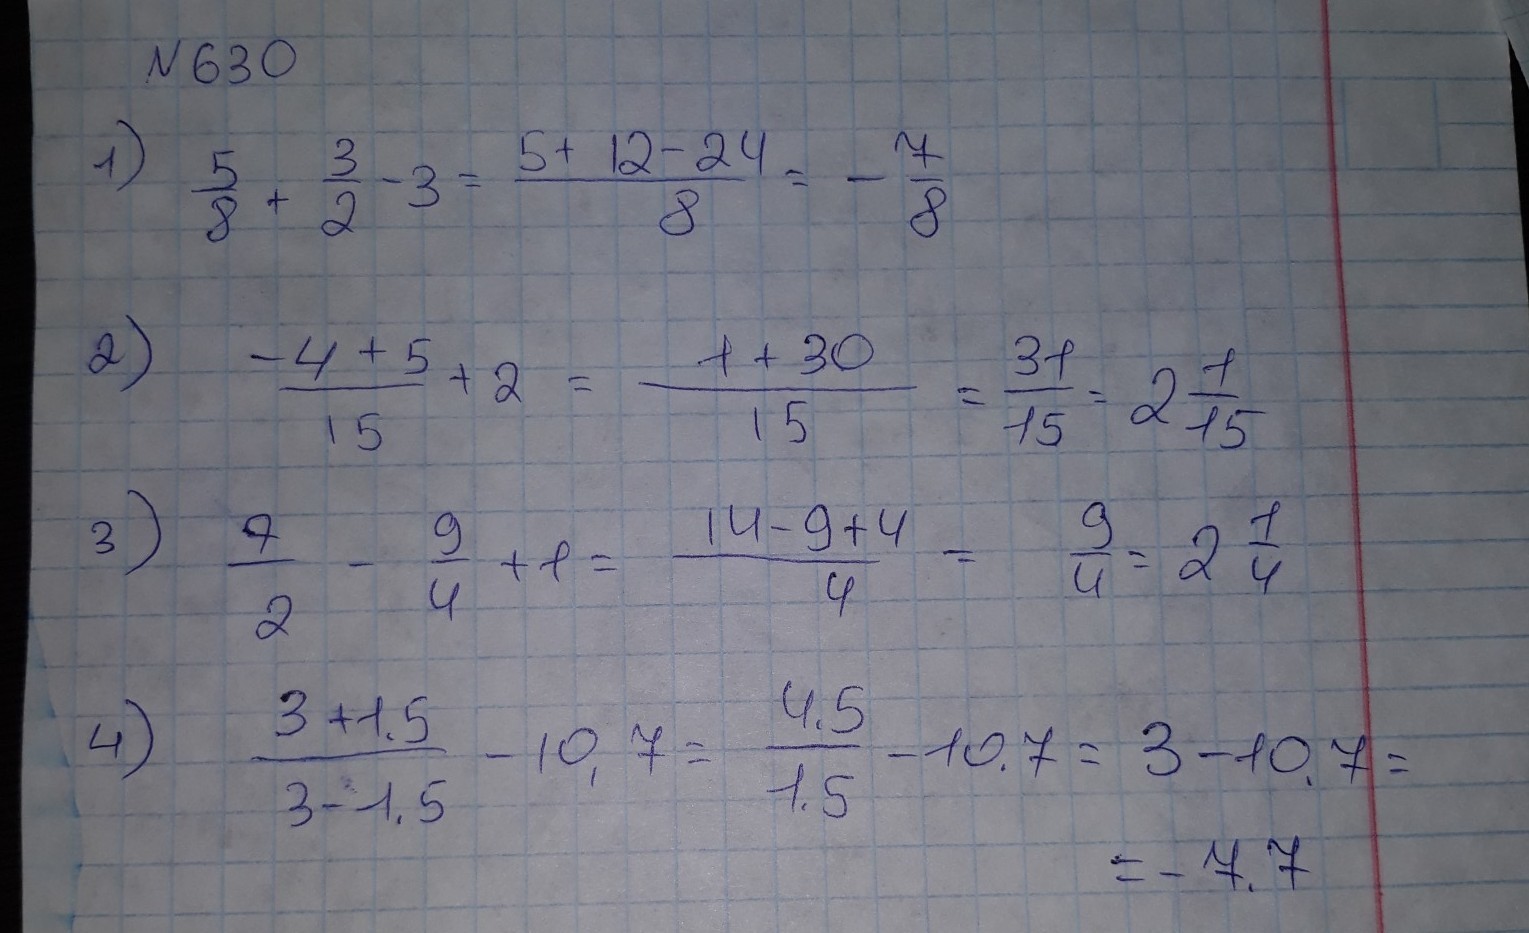 N630
1) 5/8 + 3/2 - 3 = (5 + 12 - 24)/8 = - 7/8
2) (-4 + 5)/15 + 2 = (1 + 30)/15 = 31/15 = 2 1/15
3) 7/2 - 9/4 + 1 = (14 - 9 + 4)/4 = 9/4 = 2 1/4
4) (3 + 1.5)/(3 - 1.5) - 10,7 = 4.5/1.5 - 10.7 = 3 - 10.7 =
= - 7.7